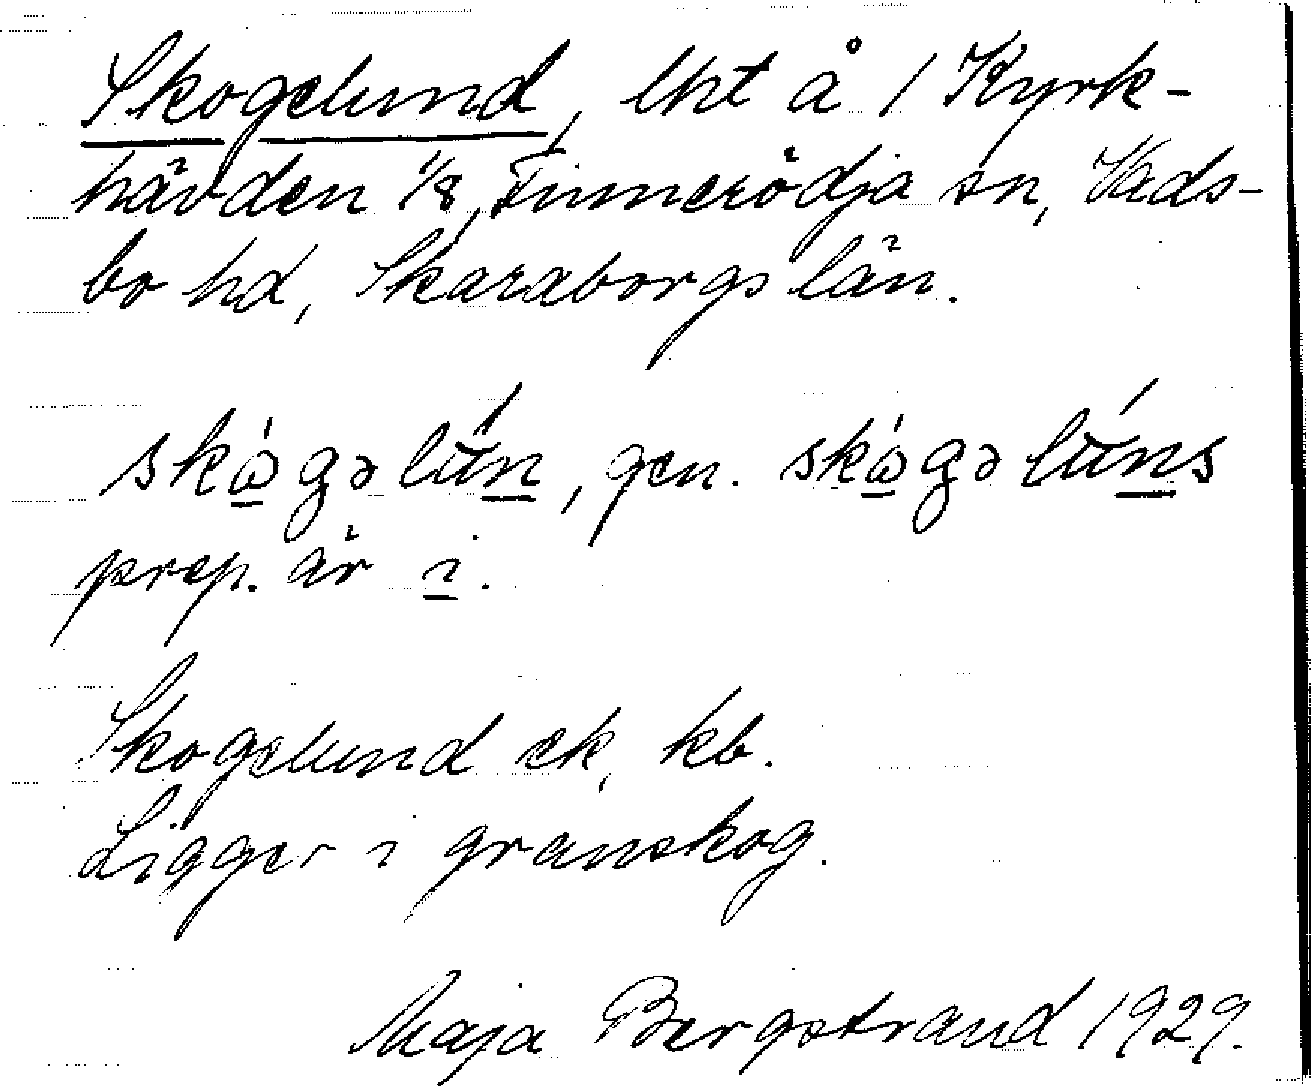 Skogelund, lht å 1 Kyrk-
hävden 1/8, Finnerödja sn, Vads-
bo hd, Skaraborgs län.
skógəlún, gen. skógəlúns
prep. är i.
Skogelund ek, kb.
Ligger i granskog.
Maja Bergstrand 1929.